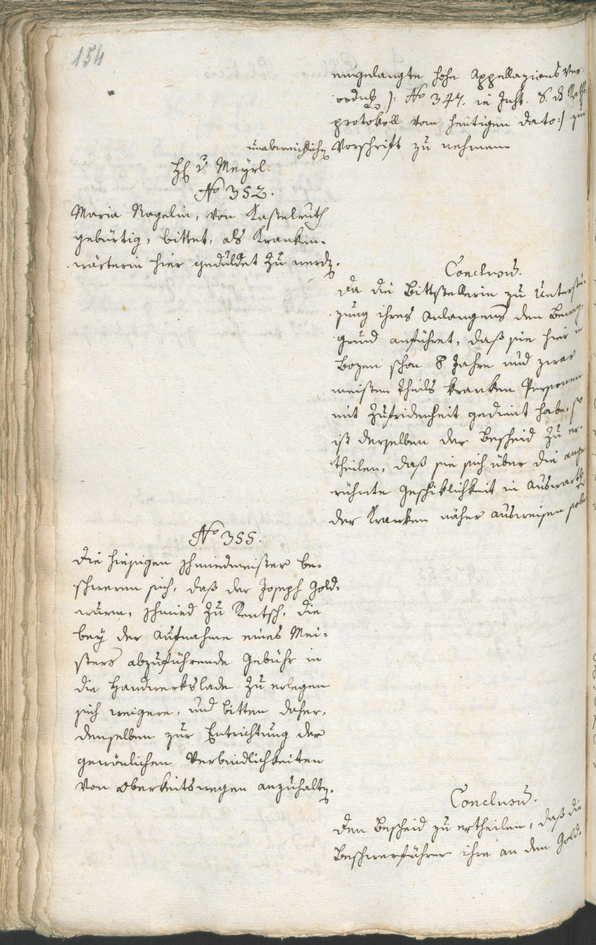 154
eingelangte hohe Appellazions Ver-
ordng ): No 347. in Just. S. d. Raths
protokoll vom heutigen dato :/ zur
Vorschrift zu nehmen
H. v. Meyrl.
No 352.
Maria Nogelin, von Kastelruth
gebürtig, bittet, als Kranken-
wärterin hier geduldet zu werdn.
Conclusum.
Da die Bittstellerin zu Unterstü-
zung ihres Anlangens den Beweg-
grund anführet, daß sie hier in
Bozen schon 8 Jahre und zwar
meisten Theils kranken Personen
mit Zufridenheit gedient habe, so
ist derselben der Bescheid zu er-
theilen, daß sie sich über die ange-
rühmte Geschiklichkeit in Auswartg
der Kranken näher ausweisen solle
No 355.
Die hiesigen Schmiedmeister be-
schweren sich, daß der Joseph Gold-
wurm, Schmied zu Rentsch, die
bey der Aufnahme eines Mei-
sters abzuführende Gebühr in
die Handwerkslade zu erlegen
sich weigere, und bitten daher,
denselben zur Entrichtung der
gewönlichen Verbindlichkeiten
von Oberkeitswegen anzuhaltn.
Conclusum.
Den Bescheid zu ertheilen, daß die
Beschwerführer ihre an den Gold-